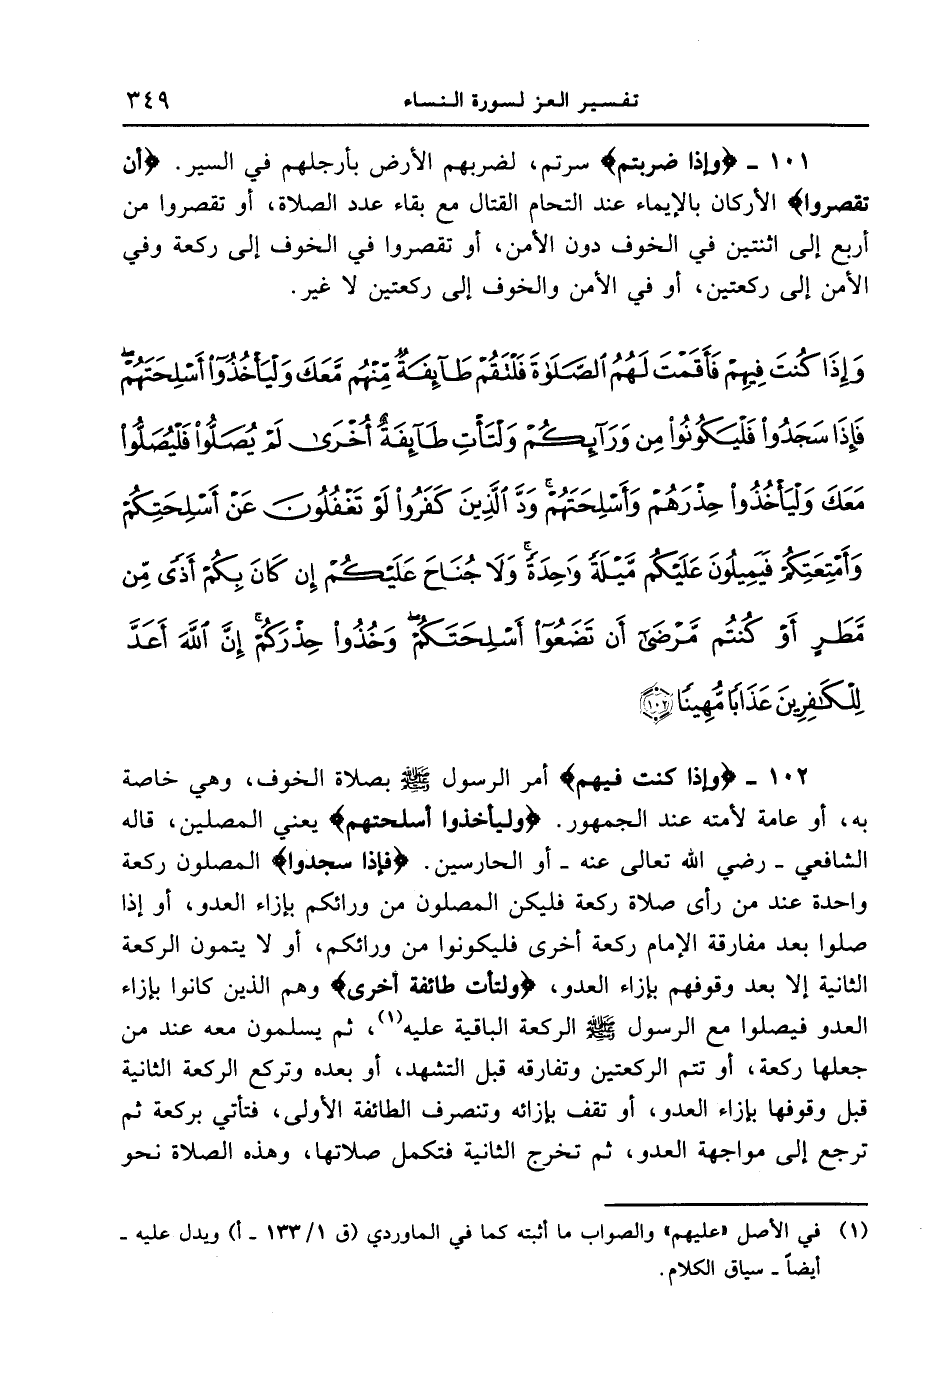 تفسير العز لسورة النساء ٣٤٩
١٠١ ـ ﴿وإذا ضربتم﴾ سرتم، لضربهم الأرض بأرجلهم في السير. ﴿أن
تقصروا﴾ الأركان بالإيماء عند التحام القتال مع بقاء عدد الصلاة، أو تقصروا من
أربع إلى اثنتين في الخوف دون الأمن، أو تقصروا في الخوف إلى ركعة وفي
الأمن إلى ركعتين، أو في الأمن والخوف إلى ركعتين لا غير.
وَإِذَا كُنتَ فِيهِمْ فَأَقَمْتَ لَهُمُ ٱلصَّلَوٰةَ فَلْتَقُمْ طَآئِفَةٌ مِّنْهُم مَّعَكَ وَلْيَأْخُذُوٓا۟ أَسْلِحَتَهُمْ ۖ
فَإِذَا سَجَدُوا۟ فَلْيَكُونُوا۟ مِن وَرَآئِكُمْ وَلْتَأْتِ طَآئِفَةٌ أُخْرَىٰ لَمْ يُصَلُّوا۟ فَلْيُصَلُّوا۟
مَعَكَ وَلْيَأْخُذُوا۟ حِذْرَهُمْ وَأَسْلِحَتَهُمْ ۗ وَدَّ ٱلَّذِينَ كَفَرُوا۟ لَوْ تَغْفُلُونَ عَنْ أَسْلِحَتِكُمْ
وَأَمْتِعَتِكُمْ فَيَمِيلُونَ عَلَيْكُم مَّيْلَةً وَٰحِدَةً ۚ وَلَا جُنَاحَ عَلَيْكُمْ إِن كَانَ بِكُمْ أَذًى مِّن
مَّطَرٍ أَوْ كُنتُم مَّرْضَىٰٓ أَن تَضَعُوٓا۟ أَسْلِحَتَكُمْ ۖ وَخُذُوا۟ حِذْرَكُمْ ۗ إِنَّ ٱللَّهَ أَعَدَّ
لِلْكَٰفِرِينَ عَذَابًا مُّهِينًا ۝١٠٢
١٠٢ ـ ﴿وإذا كنت فيهم﴾ أمر الرسول ﷺ بصلاة الخوف، وهي خاصة
به، أو عامة لأمته عند الجمهور. ﴿وليأخذوا أسلحتهم﴾ يعني المصلين، قاله
الشافعي ـ رضي الله تعالى عنه ـ أو الحارسين. ﴿فإذا سجدوا﴾ المصلون ركعة
واحدة عند من رأى صلاة ركعة فليكن المصلون من ورائكم بإزاء العدو، أو إذا
صلوا بعد مفارقة الإمام ركعة أخرى فليكونوا من ورائكم، أو لا يتمون الركعة
الثانية إلا بعد وقوفهم بإزاء العدو، ﴿ولتأت طائفة أخرى﴾ وهم الذين كانوا بإزاء
العدو فيصلوا مع الرسول ﷺ الركعة الباقية عليه(١)، ثم يسلمون معه عند من
جعلها ركعة، أو تتم الركعتين وتفارقه قبل التشهد، أو بعده وتركع الركعة الثانية
قبل وقوفها بإزاء العدو، أو تقف بإزائه وتنصرف الطائفة الأولى، فتأتي بركعة ثم
ترجع إلى مواجهة العدو، ثم تخرج الثانية فتكمل صلاتها، وهذه الصلاة نحو
(١) في الأصل «عليهم» والصواب ما أثبته كما في الماوردي (ق ١/ ١٣٣ ـ أ) ويدل عليه ـ
أيضاً ـ سياق الكلام.